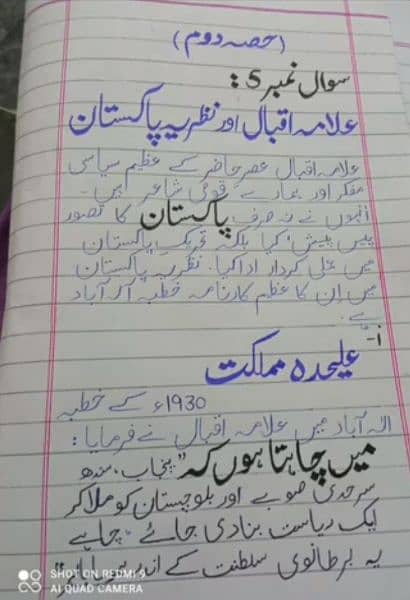 (حصہ دوم)
سوال نمبر 5:
علامہ اقبال اور نظریہ پاکستان
علامہ اقبال عصرِ حاضر کے عظیم سیاسی
مفکر اور ہمارے قومی شاعر ہیں۔
انہوں نے نہ صرف پاکستان کا تصور
پیش کیا بلکہ تحریکِ پاکستان
میں عملی کردار ادا کیا۔ نظریہ پاکستان
میں ان کا عظیم کارنامہ خطبہ الہ آباد
ہے۔
i-
علیحدہ مملکت
1930ء کے خطبہ
الہ آباد میں علامہ اقبال نے فرمایا:
میں چاہتا ہوں کہ "پنجاب، سندھ
سرحدی صوبے اور بلوچستان کو ملا کر
ایک ریاست بنا دی جائے چاہے
یہ برطانوی سلطنت کے اندر
SHOT ON REDMI 9
AI QUAD CAMERA